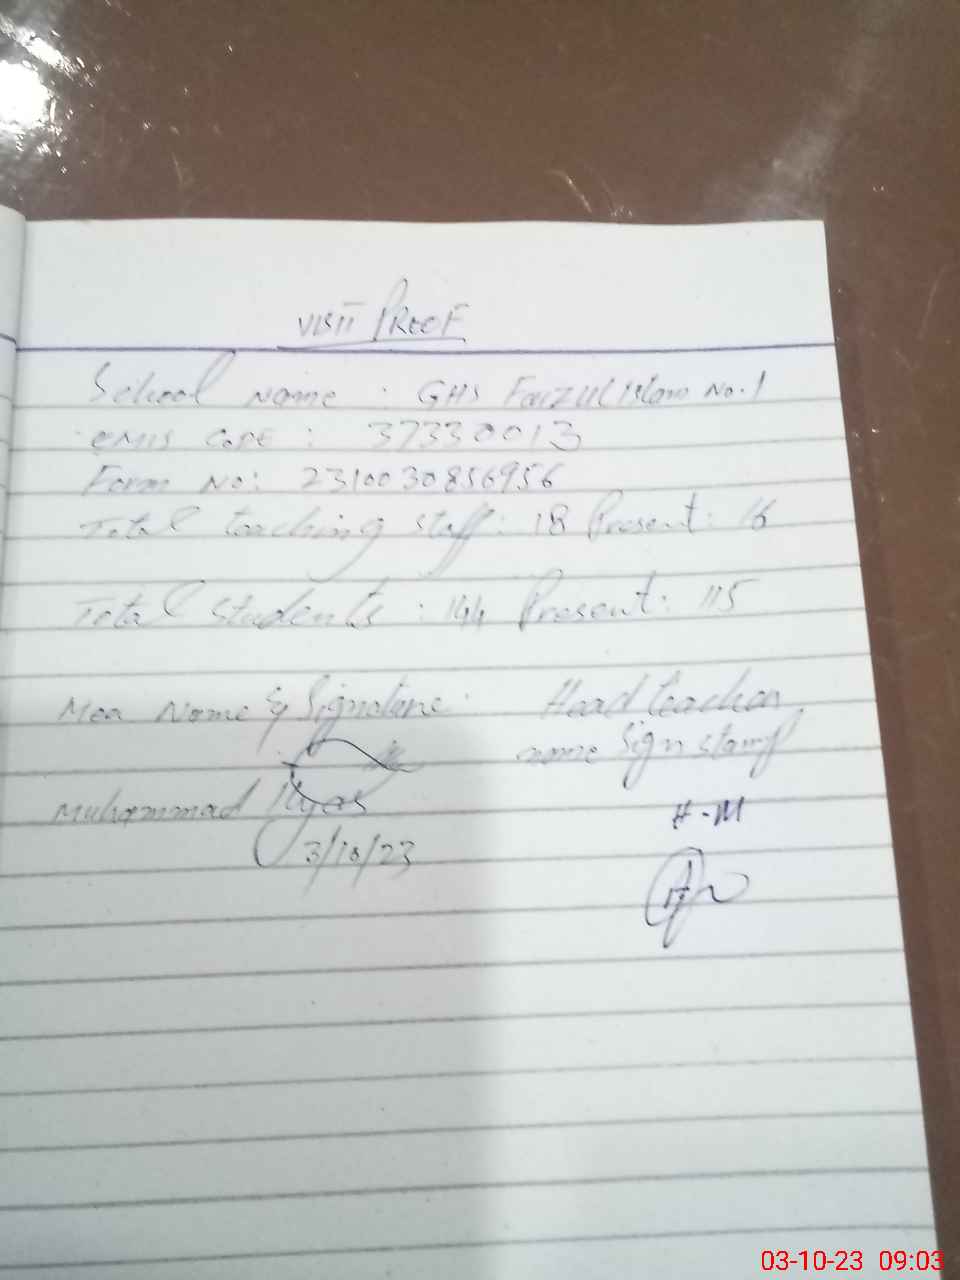 VISIT PROOF
School Name : GHS Faizul Islam No.1
EMIS CODE : 37330013
Form No: 2310030856956
Total teaching staff: 18 Present: 16
Total Students : 144 Present: 115
Mea Name & Signature: Head teacher
name Sign stamp
Muhammad Ilyas
H-M
3/10/23
03-10-23 09:03